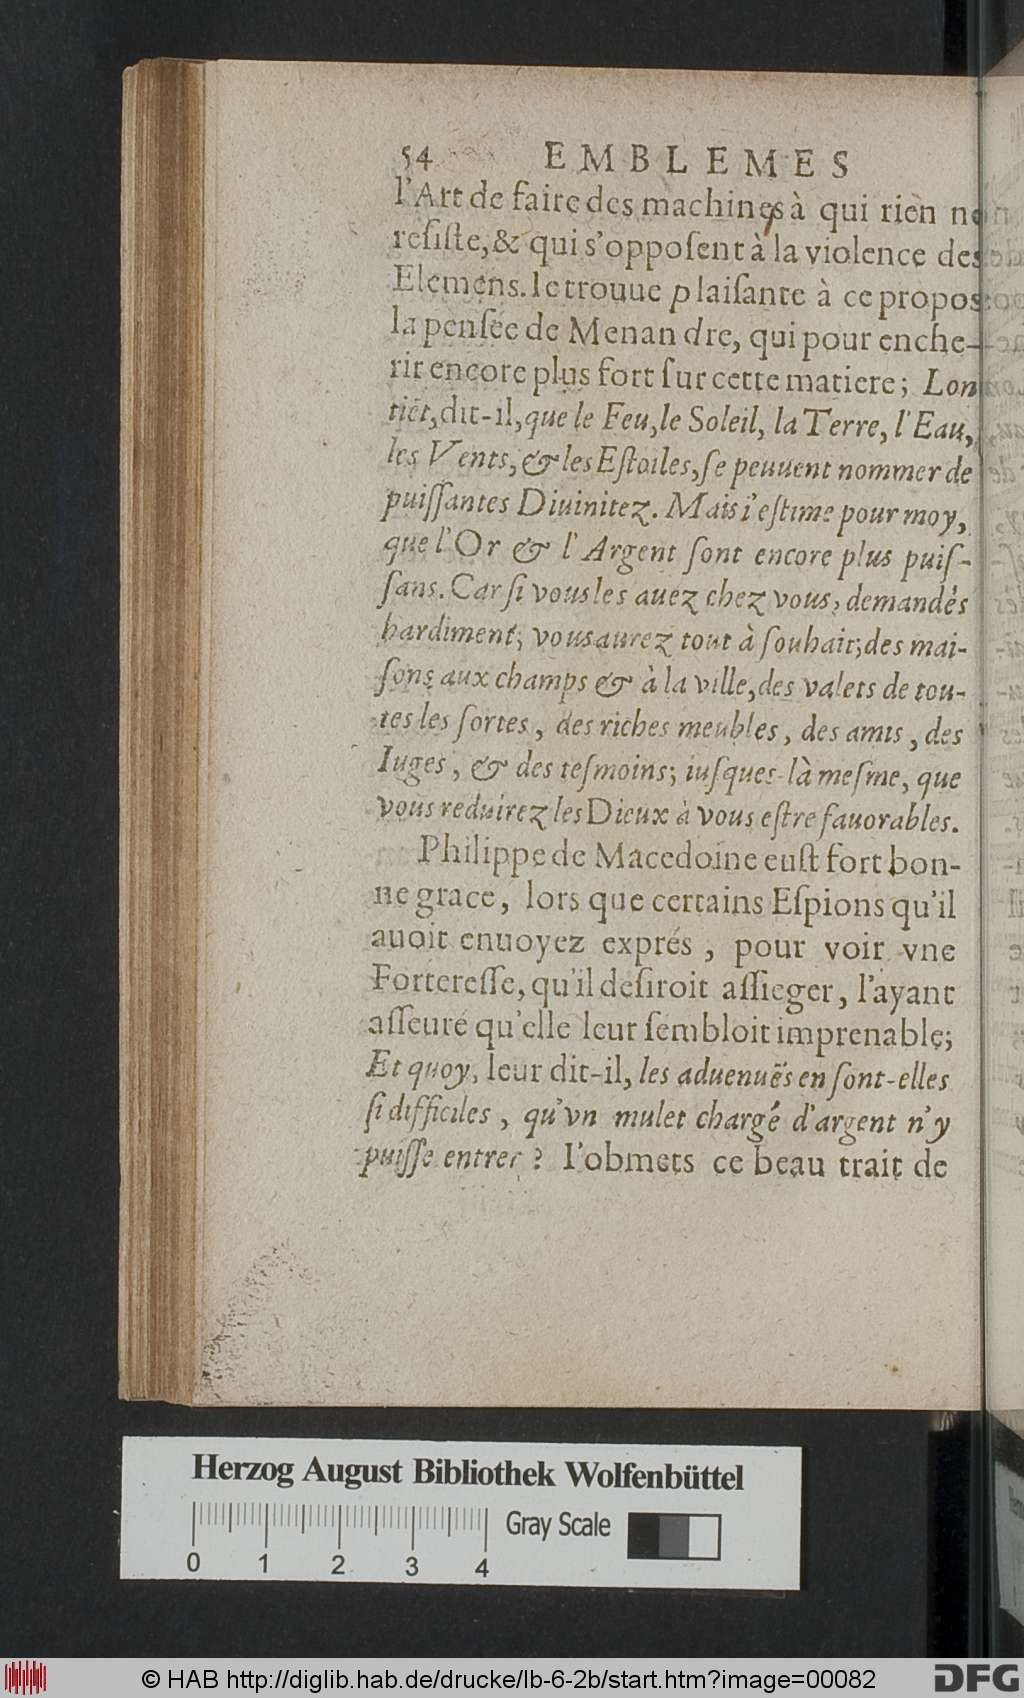 54 EMBLEMES
l'Art de faire des machines à qui rien ne
resiste, & qui s'opposent à la violence des
Elemens. Ie trouue plaisante à ce propos
la pensée de Menandre, qui pour enche-
rir encore plus fort sur cette matiere; L'on
tiẽt, dit-il, que le Feu, le Soleil, la Terre, l'Eau,
les Vents, & les Estoiles, se peuuent nommer de
puissantes Diuinitez. Mais i'estime pour moy,
que l'Or & l'Argent sont encore plus puis-
sans. Car si vous les auez chez vous, demandés
hardiment; vous aurez tout à souhait; des mai-
sons aux champs & à la ville, des valets de tou-
tes les sortes, des riches meubles, des amis, des
Iuges, & des tesmoins; iusques-là mesme, que
vous reduirez les Dieux à vous estre fauorables.
Philippe de Macedoine eust fort bon-
ne grace, lors que certains Espions qu'il
auoit enuoyez exprés, pour voir vne
Forteresse, qu'il desiroit assieger, l'ayant
asseuré qu'elle leur sembloit imprenable;
Et quoy, leur dit-il, les aduenuës en sont-elles
si difficiles, qu'vn mulet chargé d'argent n'y
puisse entrer? I'obmets ce beau trait de
Herzog August Bibliothek Wolfenbüttel
Gray Scale
0 1 2 3 4
© HAB http://diglib.hab.de/drucke/lb-6-2b/start.htm?image=00082
DFG